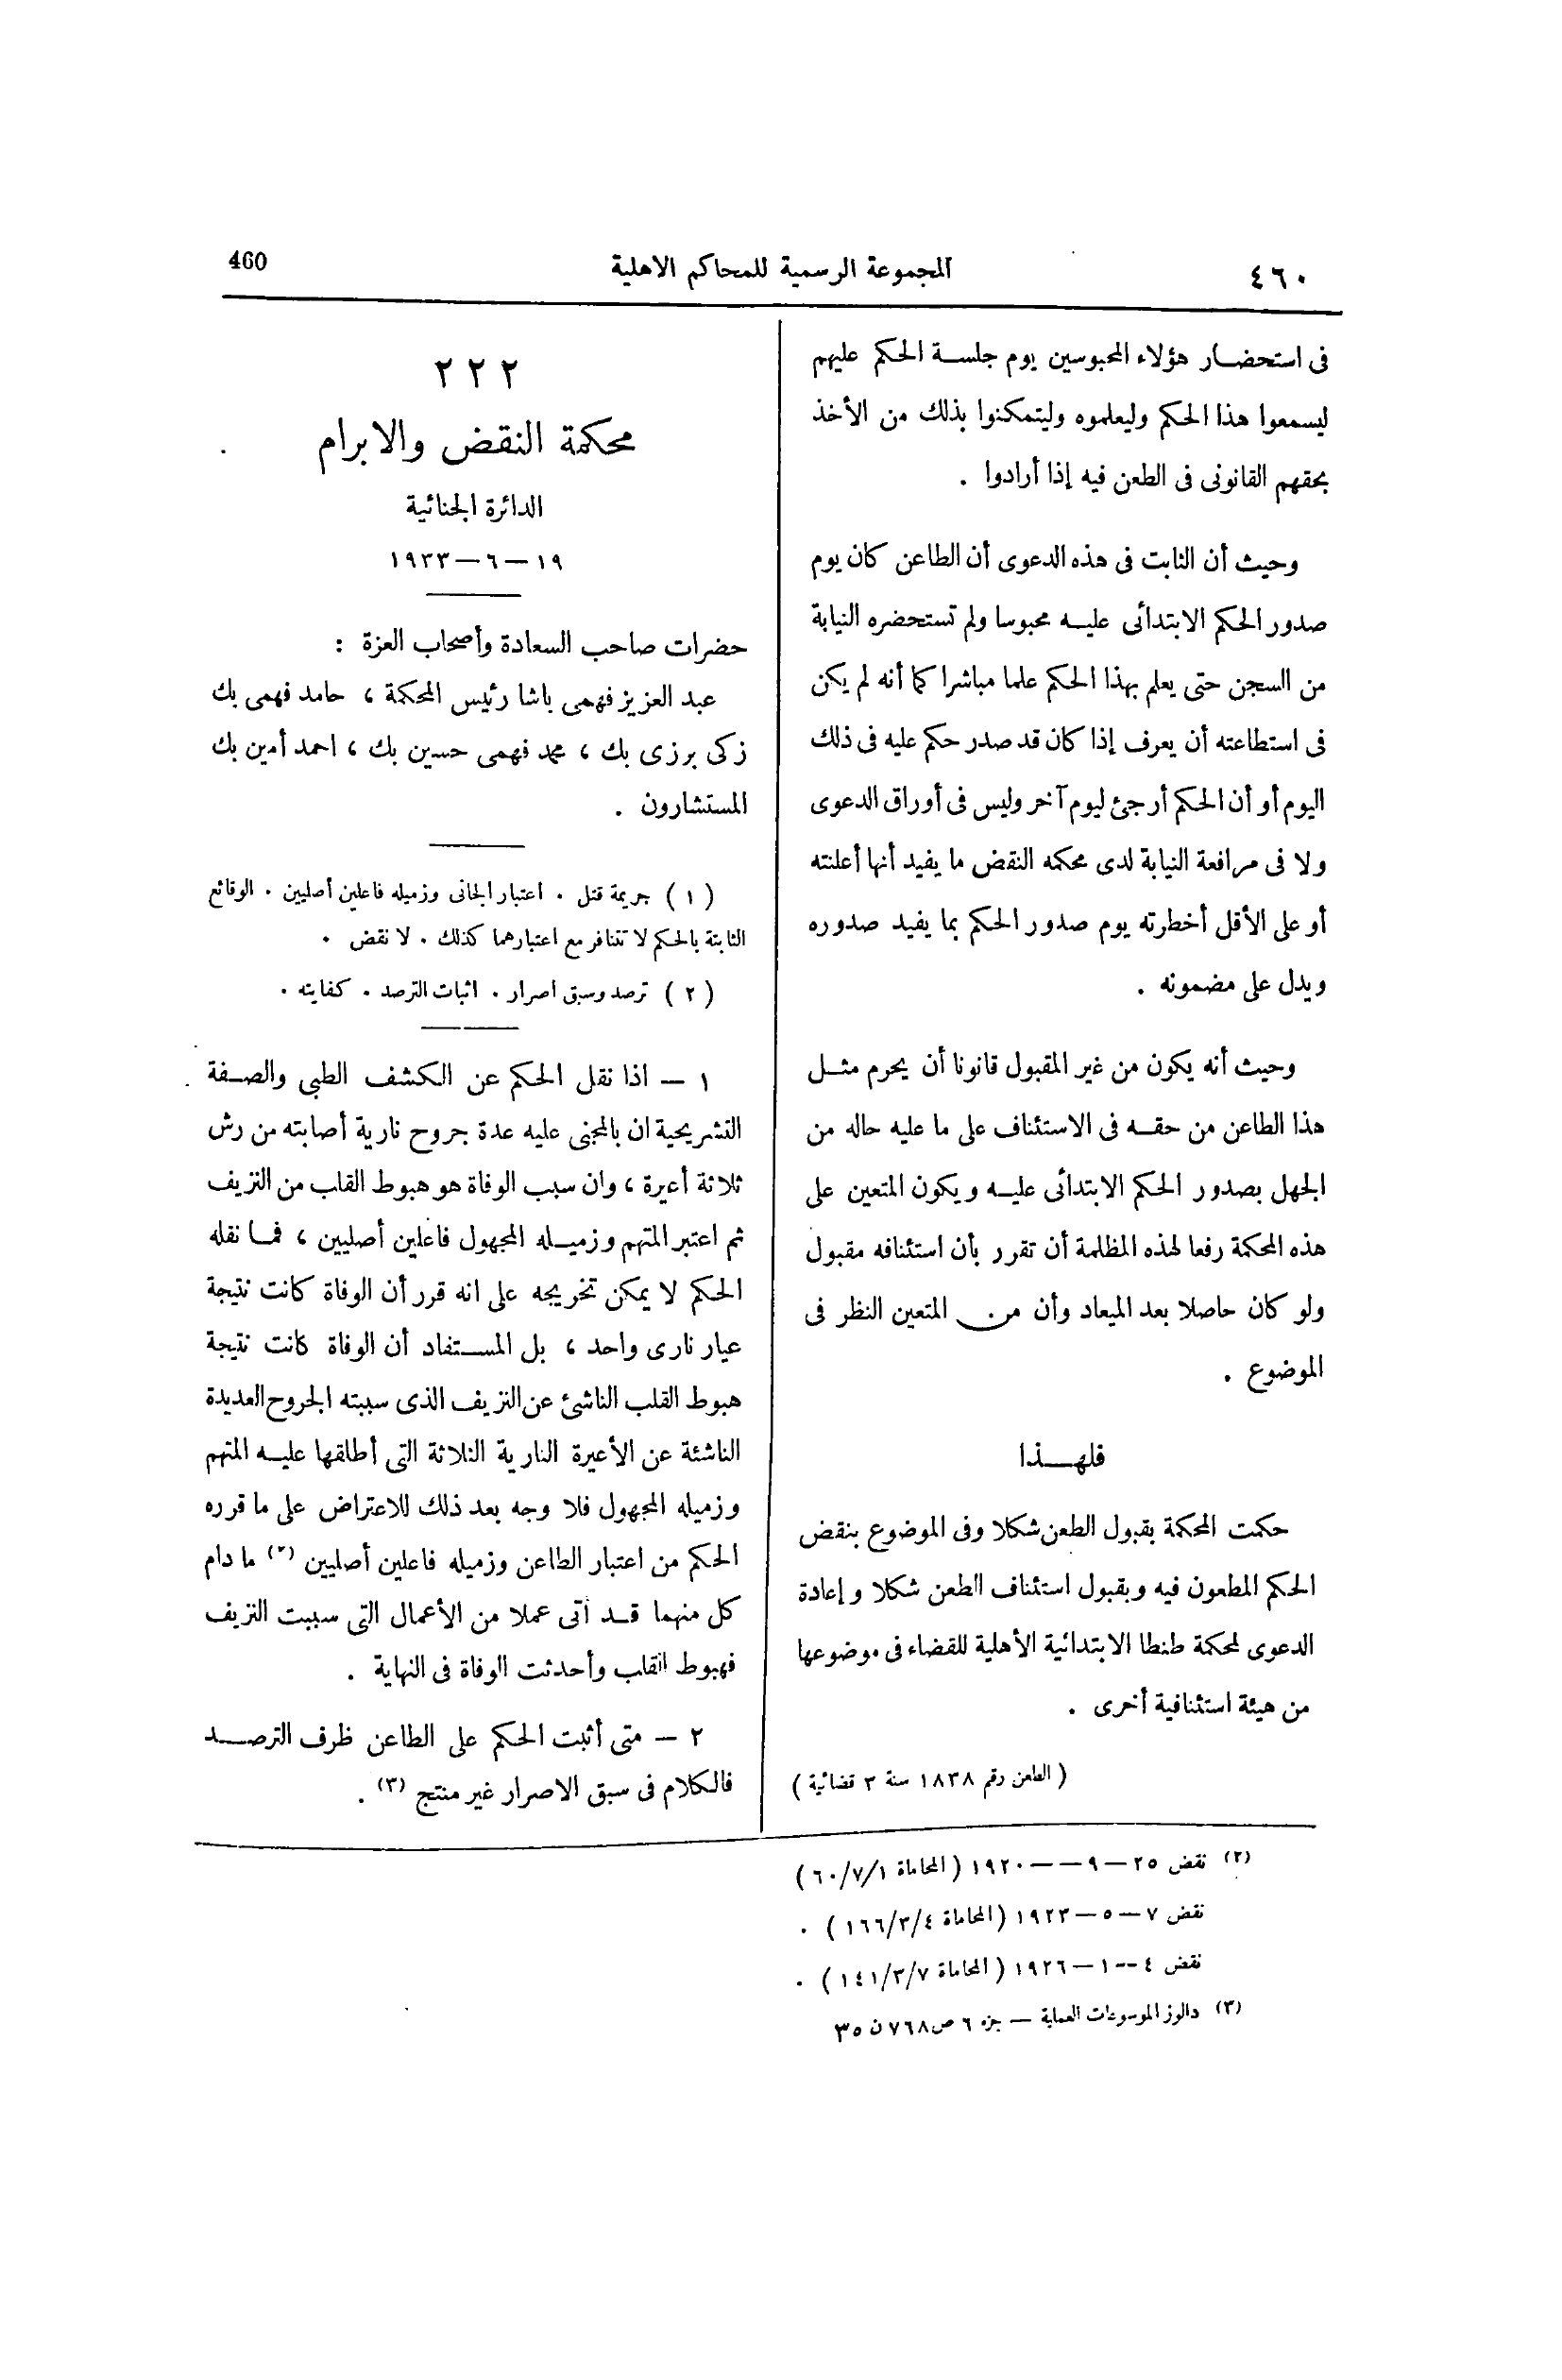 ٤٦٠
المجموعة الرسمية للمحاكم الاهلية
460
فى استحضار هؤلاء المحبوسين يوم جلسة الحكم عليهم
ليسمعوا هذا الحكم وليعلموه وليتمكنوا بذلك من الأخذ
بحقهم القانونى فى الطعن فيه إذا أرادوا .
وحيث أن الثابت فى هذه الدعوى أن الطاعن كان يوم
صدور الحكم الابتدائى عليه محبوسا ولم تستحضره النيابة
من السجن حتى يعلم بهذا الحكم علما مباشرا كما أنه لم يكن
فى استطاعته أن يعرف إذا كان قد صدر حكم عليه فى ذلك
اليوم أو أن الحكم أرجئ ليوم آخر وليس فى أوراق الدعوى
ولا فى مرافعة النيابة لدى محكمه النقض ما يفيد أنها أعلنته
أو على الأقل أخطرته يوم صدور الحكم بما يفيد صدوره
ويدل على مضمونه .
وحيث أنه يكون من غير المقبول قانونا أن يحرم مثل
هذا الطاعن من حقه فى الاستئناف على ما عليه حاله من
الجهل بصدور الحكم الابتدائى عليه ويكون المتعين على
هذه المحكمة رفعا لهذه المظلمة أن تقرر بأن استئنافه مقبول
ولو كان حاصلا بعد الميعاد وأن من المتعين النظر فى
الموضوع .
فلهذا
حكمت المحكمة بقبول الطعن شكلا وفى الموضوع بنقض
الحكم المطعون فيه وبقبول استئناف الطعن شكلا وإعادة
الدعوى لمحكمة طنطا الابتدائية الأهلية للقضاء فى موضوعها
من هيئة استئنافية أخرى .
( الطعن رقم ١٨٣٨ سنة ٣ قضائية )
٢٢٢
محكمة النقض والابرام
الدائرة الجنائية
١٩ — ٦ — ١٩٣٣
حضرات صاحب السعادة وأصحاب العزة :
عبد العزيز فهمى باشا رئيس المحكمة ، حامد فهمى بك
زكى برزى بك ، محمد فهمى حسين بك ، احمد أمين بك
المستشارون .
( ١ ) جريمة قتل . اعتبار الجانى وزميله فاعلين أصليين . الوقائع
الثابتة بالحكم لا تتنافر مع اعتبارهما كذلك . لا نقض .
( ٢ ) ترصد وسبق اصرار . اثبات الترصد . كفايته .
١ — اذا نقل الحكم عن الكشف الطبى والصفة
التشريحية ان بالمجنى عليه عدة جروح نارية أصابته من رش
ثلاثة أعيرة ، وان سبب الوفاة هو هبوط القلب من النزيف
ثم اعتبر المتهم وزميله المجهول فاعلين أصليين ، فما نقله
الحكم لا يمكن تخريجه على انه قرر أن الوفاة كانت نتيجة
عيار نارى واحد ، بل المستفاد أن الوفاة كانت نتيجة
هبوط القلب الناشئ عن النزيف الذى سببته الجروح العديدة
الناشئة عن الأعيرة النارية الثلاثة التى أطلقها عليه المتهم
وزميله المجهول فلا وجه بعد ذلك للاعتراض على ما قرره
الحكم من اعتبار الطاعن وزميله فاعلين أصليين (٢) ما دام
كل منهما قد أتى عملا من الأعمال التى سببت النزيف
فهبوط القلب وأحدثت الوفاة فى النهاية .
٢ — متى أثبت الحكم على الطاعن ظرف الترصد
فالكلام فى سبق الاصرار غير منتج (٣) .
(٢) نقض ٢٥ — ٩ — — ١٩٢٠ ( المحاماة ٦٠/٧/١ )
نقض ٧ — ٥ — ١٩٢٣ ( المحاماة ١٦٦/٣/٤ ) .
نقض ٤ -- ١ — ١٩٢٦ ( المحاماة ١٤١/٣/٧ ) .
(٣) دالوز الموسوعات العملية — جزء ٦ ص ٧٦٨ ن ٣٥